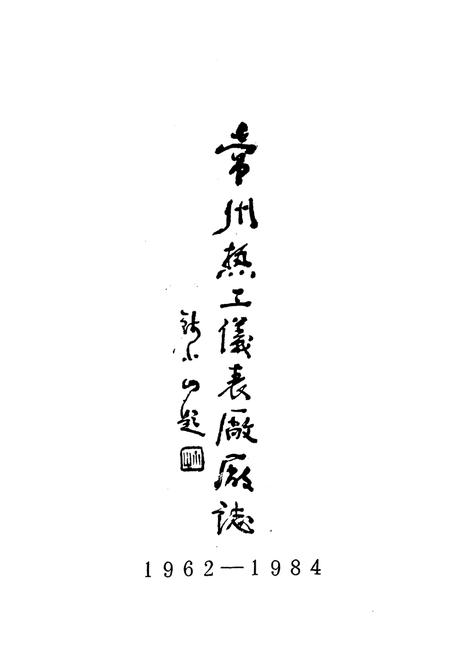 常州热工儀表廠廠誌
钱小山题
1962—1984